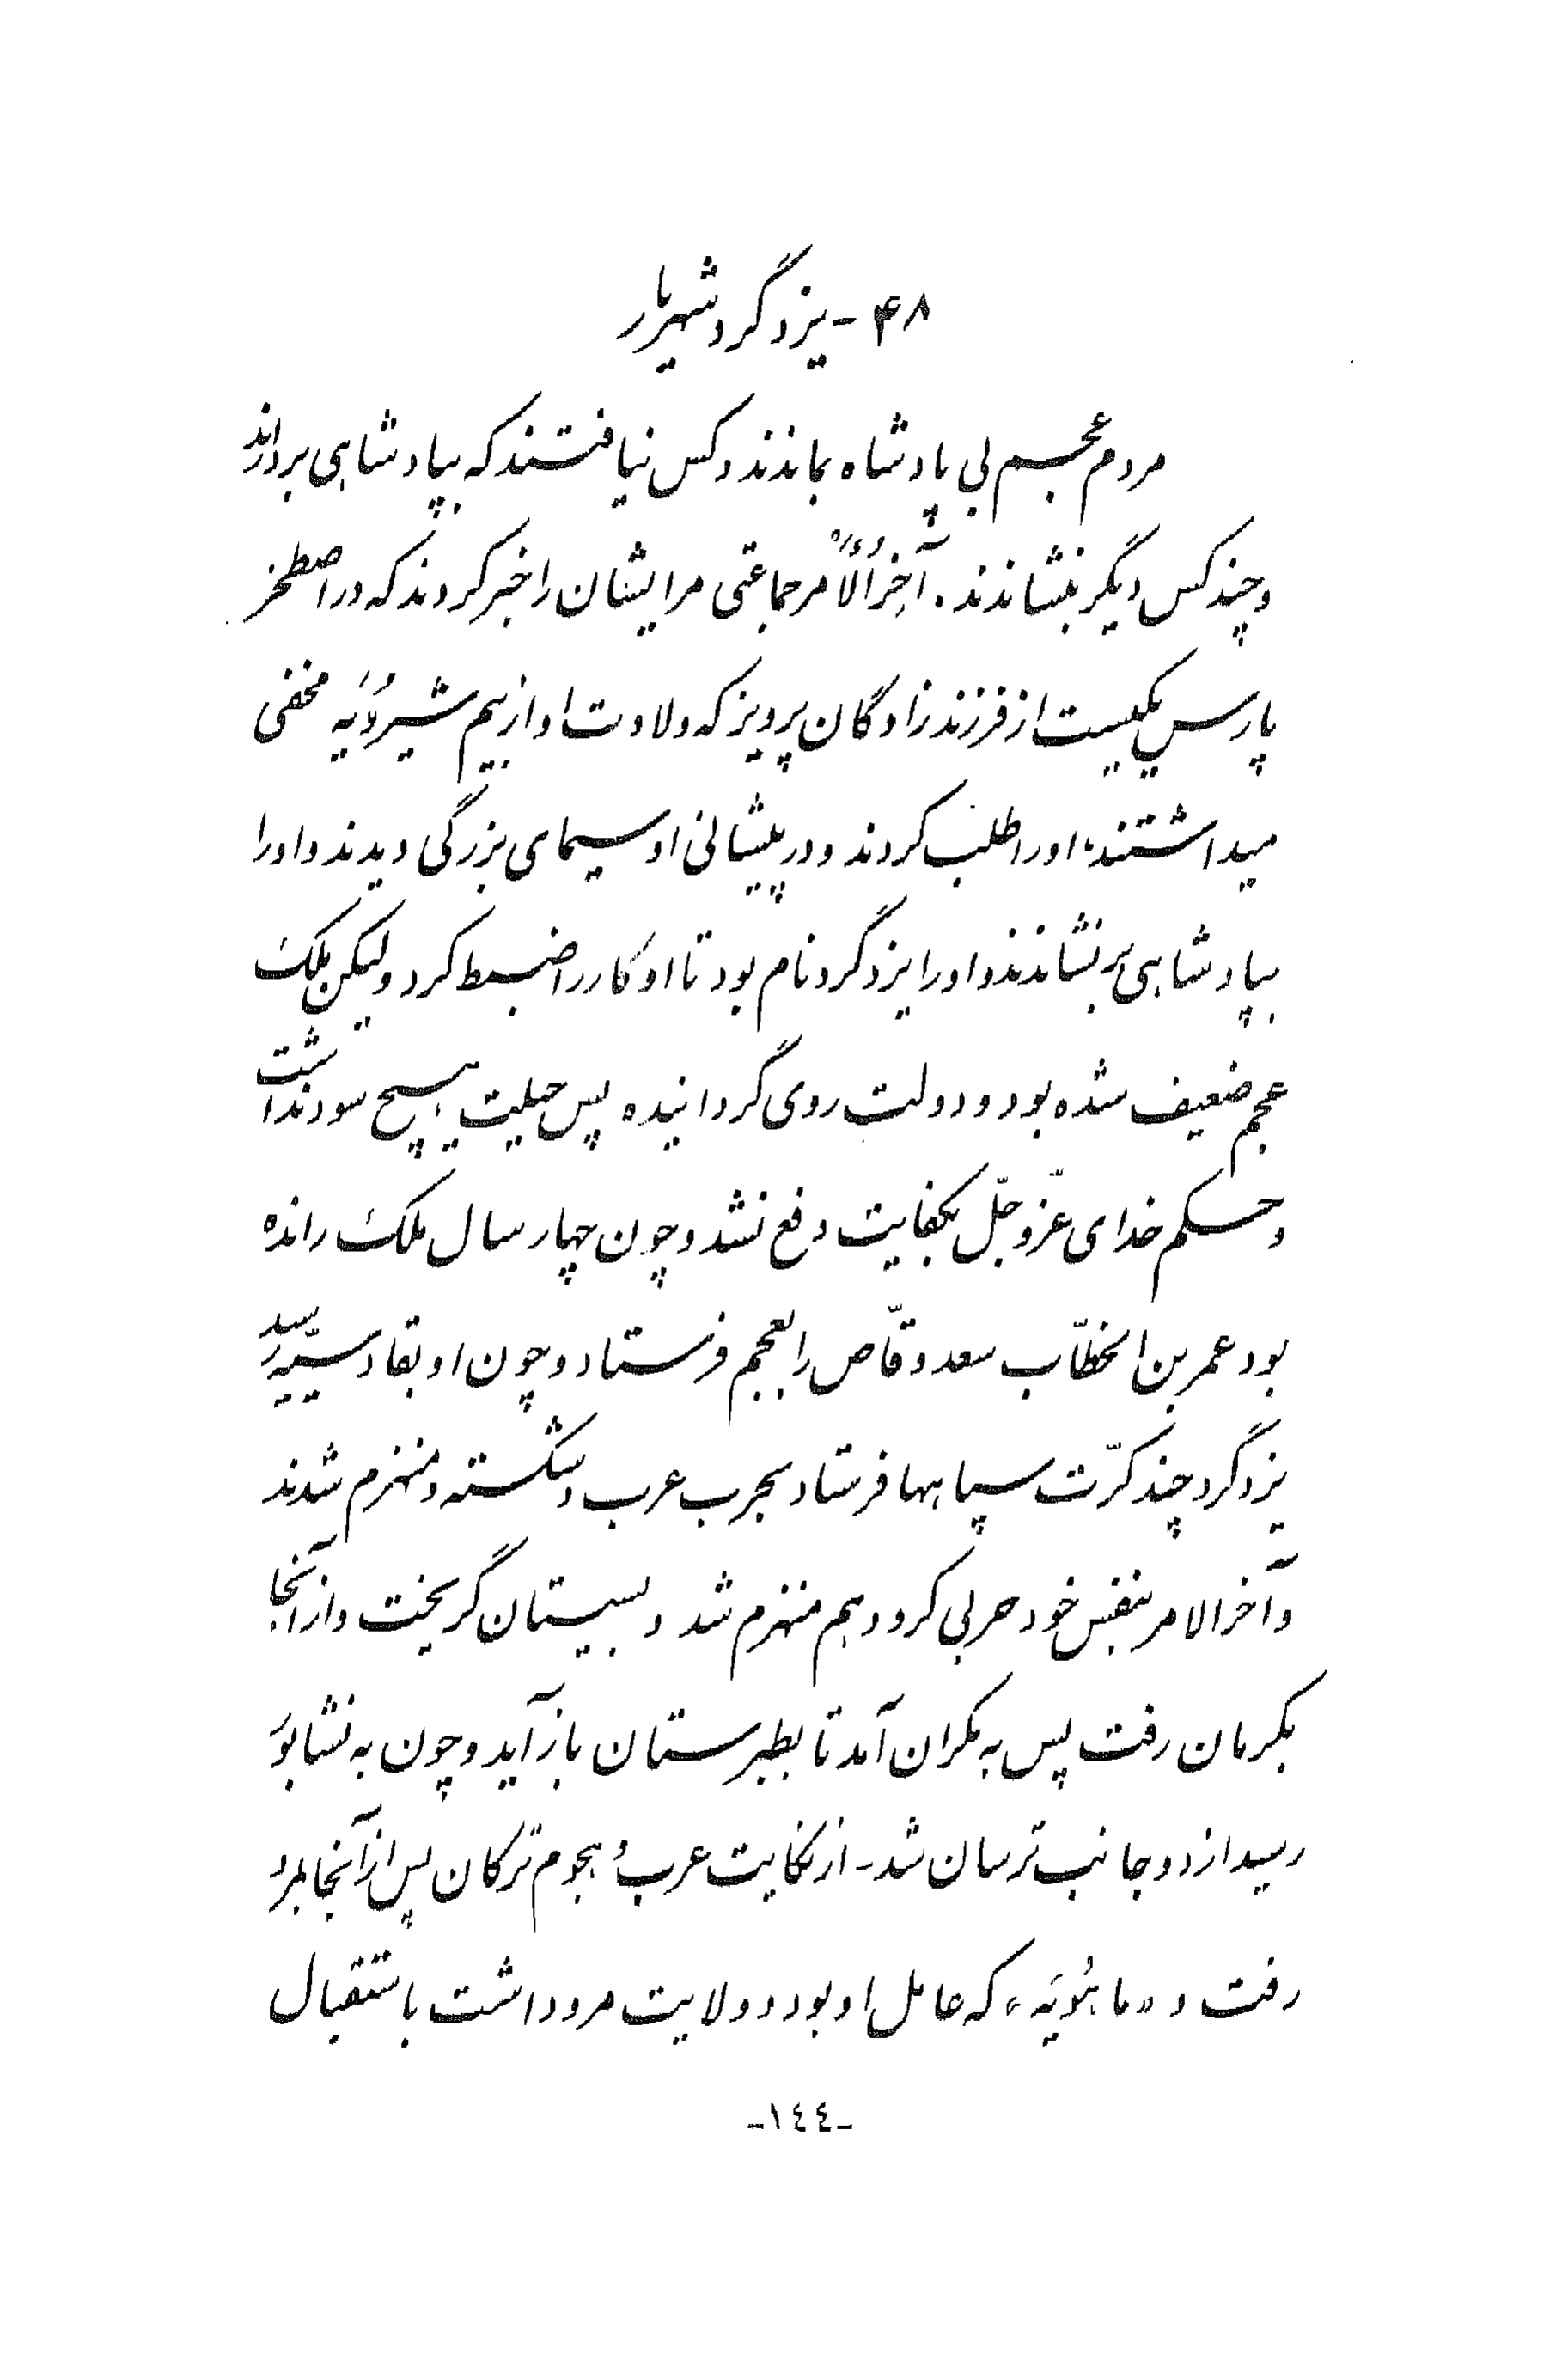 ۴۸ - یزدگرد شهریار
مردم عجم بی پادشاه بماندند و کس نیافتند که بپادشاهی بردارند
و چند کس دیگر بنشاندند. آخِرُالْأَمر جماعتی مر ایشان را خبر کردند که در اصطخر
پارس یکیست از فرزندزادگان پرویز که ولادت او از بیم شیرُویَه مخفی
میداشتند، او را طلب کردند و در پیشانی او سیمای بزرگی دیدند و او را
بپادشاهی برنشاندند و او را یزدگرد نام بود تا او کار را ضبط کرد ولیکن ملک
عجم ضعیف شده بود و دولت روی گردانیده پس حیلیت هیچ سود نداشت
و حکم خدای عزّوجلّ بکفایت دفع نشد و چون چهار سال ملک رانده
بود عمر بن الخطّاب سعد وقّاص را بعجم فرستاد و چون او بقادسیّیه رسید
یزدگرد چند کرّت سپاهها فرستاد بحرب عرب و شکسته و منهزم شدند
و آخر الامر بنفس خود حربی کرد و هم منهزم شد و بسیستان گریخت و از آنجا
بکرمان رفت پس به مکران آمد تا بطبرستان باز آید و چون به نشابوَر
رسید از دو جانب ترسان شد - از نکایت عرب و هجوم ترکان پس از آنجا بمرو
رفت و «ماهُویَه» که عامل او بود و ولایت مرو داشت باستقبال
-١٤٤-